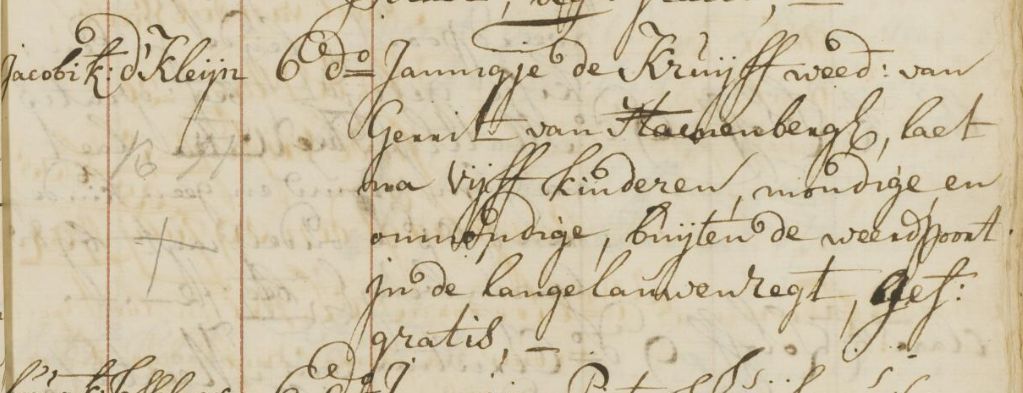 Jacobi k: d' Kleijn 6e do Jannigje de Kruijff weed: van
Gerrit van, laet
na vijff kinderen, mondige, en
onmondige, buijten de weerdpoort
in de lange lauwenregt, gef:
gratis,